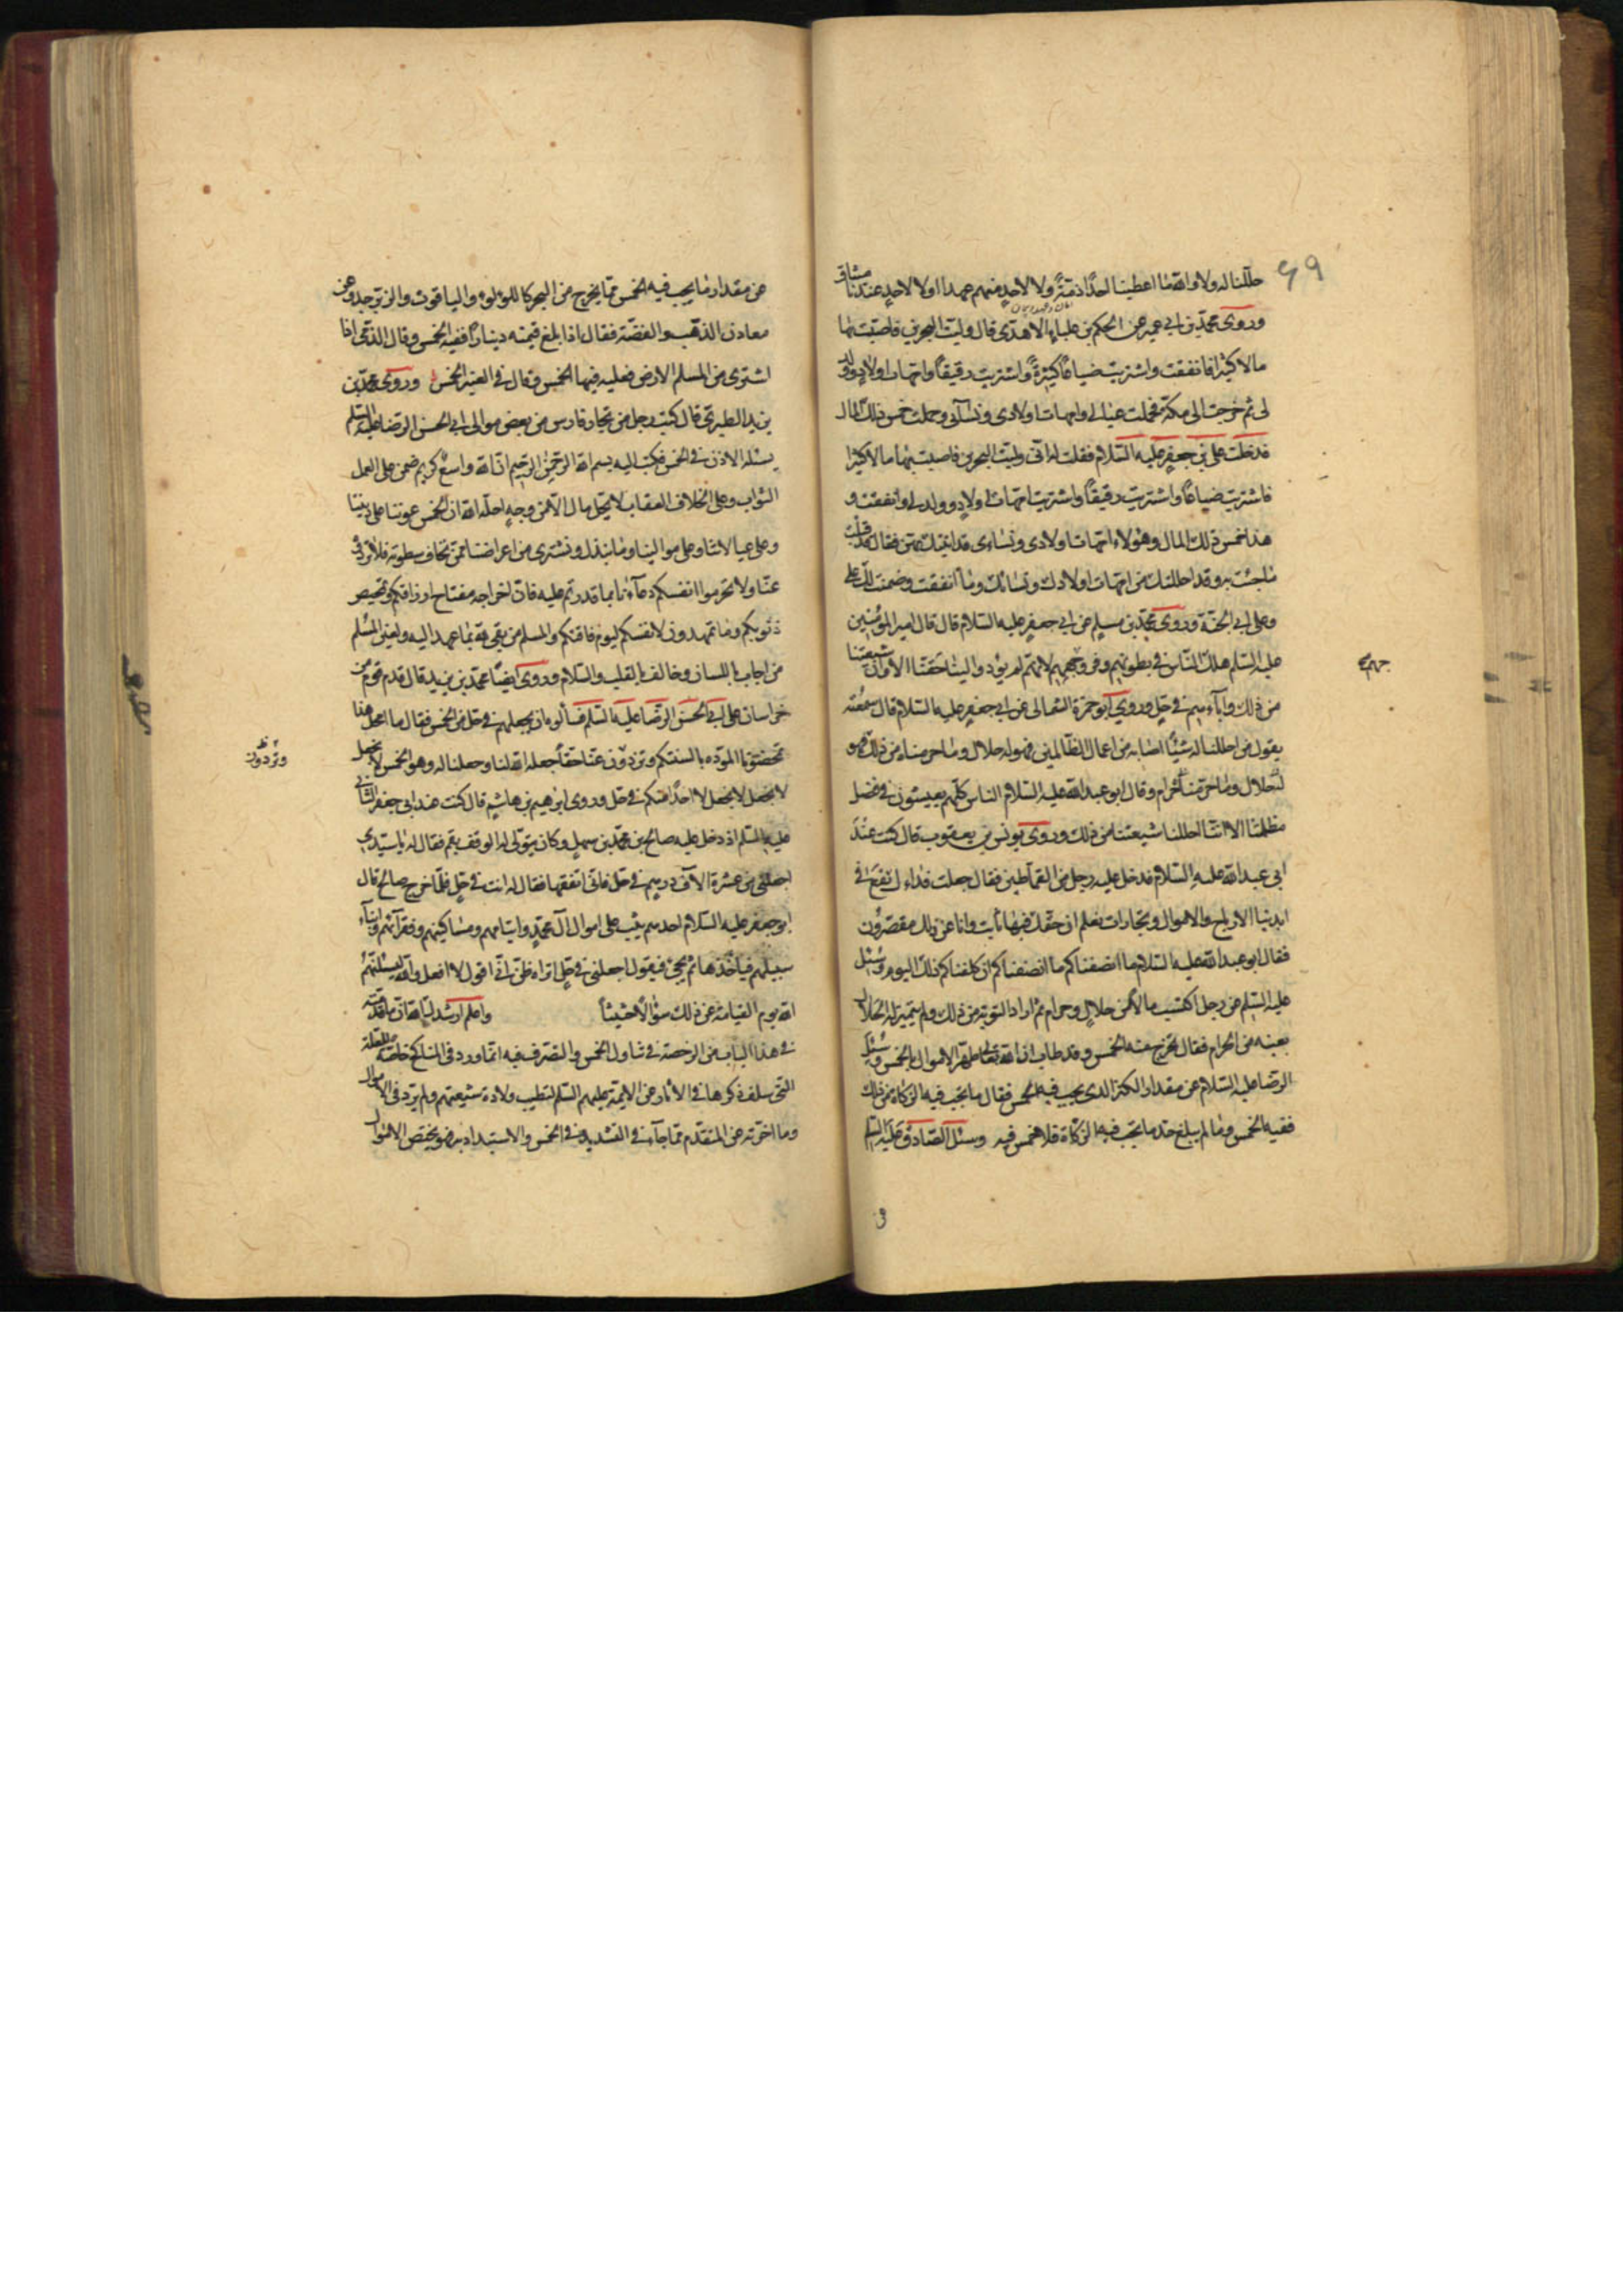 ٤٩
حللنا له ولا والله ما اعطينا احدًا ذمّةً ولا لاحدٍ منهم عهدا ولا لاحدٍ عندنا ميثاق
وروى محمّد بن ابي عمير عن الحكم بن علباء الاسدى قال وليت البحرين فاصبت بها
مالا كثيرا فانفقت واشتريت ضياعًا كثيرةً واشتريت رقيقًا وامهات اولاد وولد
لى ثم خرجت الى مكة فحملت عيالى وامهات اولادى ونسآئى وحملت خمس ذلك المال
فدخلت على ابى جعفر عليه السّلام فقلت له انّى وليت البحرين فاصبت بها مالا كثيرا
فاشتريت ضياعًا واشتريت رقيقًا واشتريت امّهات اولاد وولد لى وانفقت و
هذا خمس ذلك المال وهؤلاء امّهات اولادى ونساءى قد اتيتك بهن فقال قد قبلت
ما جئت به وقد احللتك من امهات اولادك ونسائك وما انفقت وضمنت لك علىّ
وعلى ابى الجنّة وروى محمّد بن مسلم عن ابى جعفر عليه السّلام قال قال امير المؤمنين
عليه السّلم هلك النّاس فى بطونهم وفروجهم لانهم لم يؤدوا الينا حقّنا الا وان شيعتنا
من ذلك وآباءهم فى حلٍ وروى ابو حمزة الثمالى عن ابى جعفر عليه السّلام قال سمعته
يقول من احللنا له شيئًا اصابه من اعمال الظّالمين فهو له حلال وما حرمناه من ذلك فهو
له حلال وما حرّمنا حرام وقال ابو عبد الله عليه السّلام الناس كلّهم يعيشون فى فضل
مظلمتنا الا انّا احللنا شيعتنا من ذلك وروى يونس بن يعقوب قال كنت عند
ابى عبد الله عليه السّلام فدخل عليه رجل من القمّاطين فقال جعلت فداءك تقع فى
ايدينا الارباح والاموال وتجارات نعلم ان حقّك فيها ثابت وانا عن ذلك مقصّرون
فقال ابو عبد الله عليه السّلام ما انصفناكم ان كلفناكم ذلك اليوم وسئل
عليه السّلم عن رجل اكتسب مالًا من حلال وحرام ثم اراد التوبة من ذلك ولم يتميز له الحلال
بعينه من الحرام فقال يخرج منه الخمس وقد طاب ان الله تعالى طهّر الاموال بالخمس وسئل
الرّضا عليه السّلام عن مقدار الكنز الذى يجب فيه الخمس فقال ما يجب فيه الزكاة من ذلك
ففيه الخمس وما لم يبلغ حد ما تجب فيه الزكاة فلا خمس فيه وسئل الصّادق عليه السّلم
عن مقدار ما يجب فيه الخمس ممّا يخرج من البحر كاللؤلؤ والياقوت والزبرجد وعن
معادن الذهب والفضّة فقال اذا بلغ قيمته دينارًا ففيه الخمس وقال الذّمى اذا
اشترى من المسلم الارض فعليه فيها الخمس وقال فى العنبر الخمس وروى محمّد بن
يزيد الطبرى قال كتب رجل من تجار فارس من بعض موالى ابى الحسن الرّضا عليه السّلم
يسئله الاذن فى الخمس فكتب اليه بسم الله الرّحمن الرّحيم انّ الله واسع كريم ضمن على العمل
الثواب وعلى الخلاف العقاب لا يحلّ مال الّا من وجهٍ احلّه الله ان الخمس عوننا على ديننا
وعلى عيالاتنا وعلى موالينا وما نبذل ونشترى من اعراضنا ممّن نخاف سطوته فلا تزووه
عنّا ولا تحرموا انفسكم دعآءنا ما قدرتم عليه فان اخراجه مفتاح ارزاقكم وتمحيص
ذنوبكم وما تمهدون لانفسكم ليوم فاقتكم والمسلم من يفى لله بما عهد اليه وليس المسلم
من اجاب باللسان وخالف بالقلب والسّلام وروى ايضًا محمّد بن يزيد قال قدم قوم من
خراسان على ابى الحسن الرّضا عليه السّلم فسألوه ان يجعلهم فى حلّ من الخمس فقال ما امحل هذا
تمحضونا المودّه بالسنتكم وتزوون عنّا حقًّا جعله الله لنا وجعلنا له وهو الخمس لا نجعل
لا نجعل لا نجعل لاحدٍ منكم فى حلّ وروى ابرهيم بن هاشم قال كنت عند ابى جعفر الثانى
عليه السّلم اذ دخل عليه صالح بن محمّد بن سهل وكان يتولّى له الوقف بقم فقال له يا سيّدى
اجعلنى من عشرة الآف درهم فى حلّ فانّى انفقتها فقال له انت فى حلّ فلمّا خرج صالح قال
ابو جعفر عليه السّلام احدهم يثب على اموال آل محمّد وايتامهم ومساكينهم وفقرآئهم وابنآء
سبيلهم فياخذها ثم يجئ فيقول اجعلنى فى حلٍ اتراه ظنّ انّى اقول لا افعل والله ليسئلنّهم
الله يوم القيامة عن ذلك سؤالًا حثيثًا واعلم ارشدك الله ان ما قدمته
فى هذا الباب من الرخصة فى تناول الخمس والتصرف فيه انّما ورد فى المناكح خاصّة للعلة
التى سلف ذكرها فى الآثار عن الائمة عليهم السّلم لتطيب ولادة شيعتهم ولم يرد فى الاموال
وما اخّرته عن المتقدّم ممّا جآء فى التشديد فى الخمس والاستبداد به فهو يختص الاموال